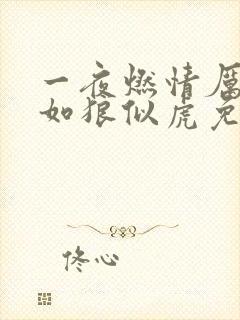 一夜燃情厉
如狼似虎免
佟心